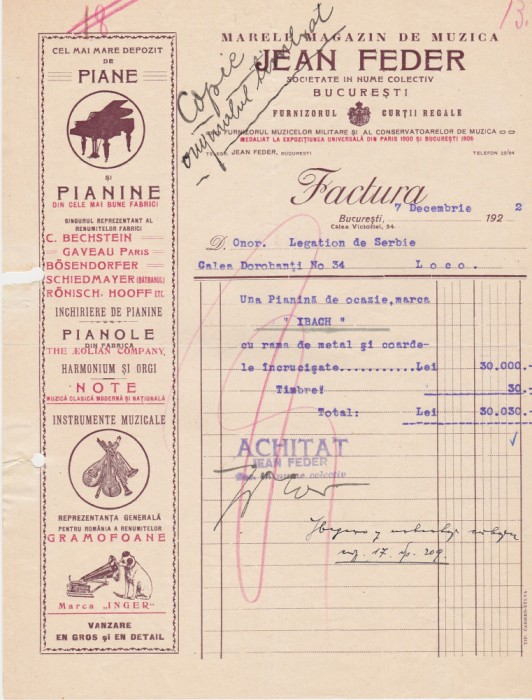 18
13.
Copie
originalul timbrat
MARELE MAGAZIN DE MUZICA
JEAN FEDER
SOCIETATE IN NUME COLECTIV
BUCUREȘTI
FURNIZORUL CURȚII REGALE
FURNIZORUL MUZICELOR MILITARE ȘI AL CONSERVATOARELOR DE MUZICA
MEDALIAT LA EXPOZIȚIUNEA UNIVERSALA DIN PARIS 1900 ȘI BUCUREȘTI 1906
TELEGR. JEAN FEDER, BUCUREȘTI
TELEFON 23/64
Factura
București, 7 Decembrie 1922
Calea Victoriei, 54.
D. Onor. Legation de Serbie
Calea Dorobanți No 34 Loco.
Una Pianină de ocazie, marca
" IBACH "
cu rama de metal și coarde-
le încrucișate............Lei 30.000.-
Timbre! 30.-
Total: Lei 30.030.-
ACHITAT
JEAN FEDER
Soc. în nume colectiv
CEL MAI MARE DEPOZIT
DE
PIANE
ȘI
PIANINE
DIN CELE MAI BUNE FABRICI
SINGURUL REPREZENTANT AL
RENUMITELOR FABRICI
C. BECHSTEIN
GAVEAU PARIS
BÖSENDORFER
SCHIEDMAYER (BĂTRÂNUL)
RÖNISCH, HOOFF ETC.
INCHIRIERE DE PIANINE
PIANOLE
DIN FABRICA
THE ÆOLIAN COMPANY,
HARMONIUM ȘI ORGI
NOTE
MUZICĂ CLASICĂ MODERNĂ ȘI NAȚIONALĂ
INSTRUMENTE MUZICALE
REPREZENTANȚA GENERALĂ
PENTRU ROMÂNIA A RENUMITELOR
GRAMOFOANE
Marca „INGER"
VANZARE
EN GROS și EN DETAIL